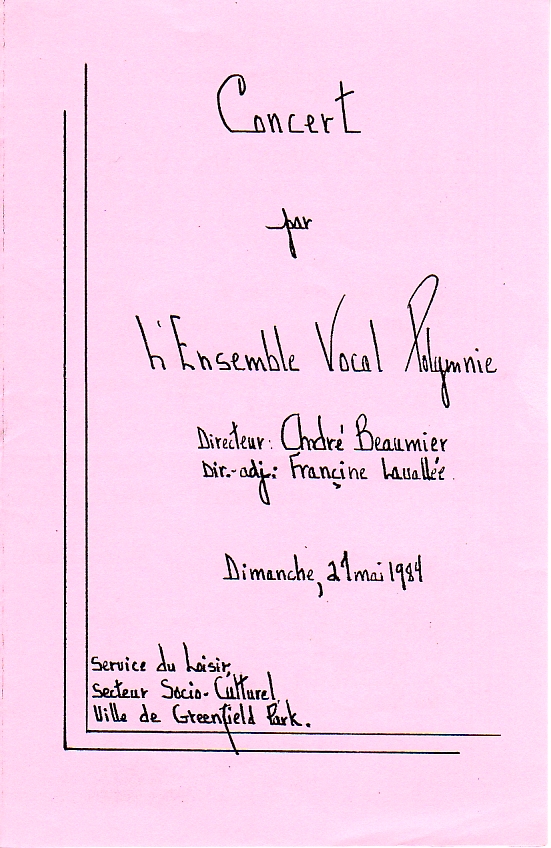 Concert
par
L'Ensemble Vocal Polymnie
Directeur: André Beaumier
Dir.-adj.: Françine Lavallée.
Dimanche, 27 mai 1984
Service du Loisir,
Secteur Socio-Culturel,
Ville de Greenfield Park.